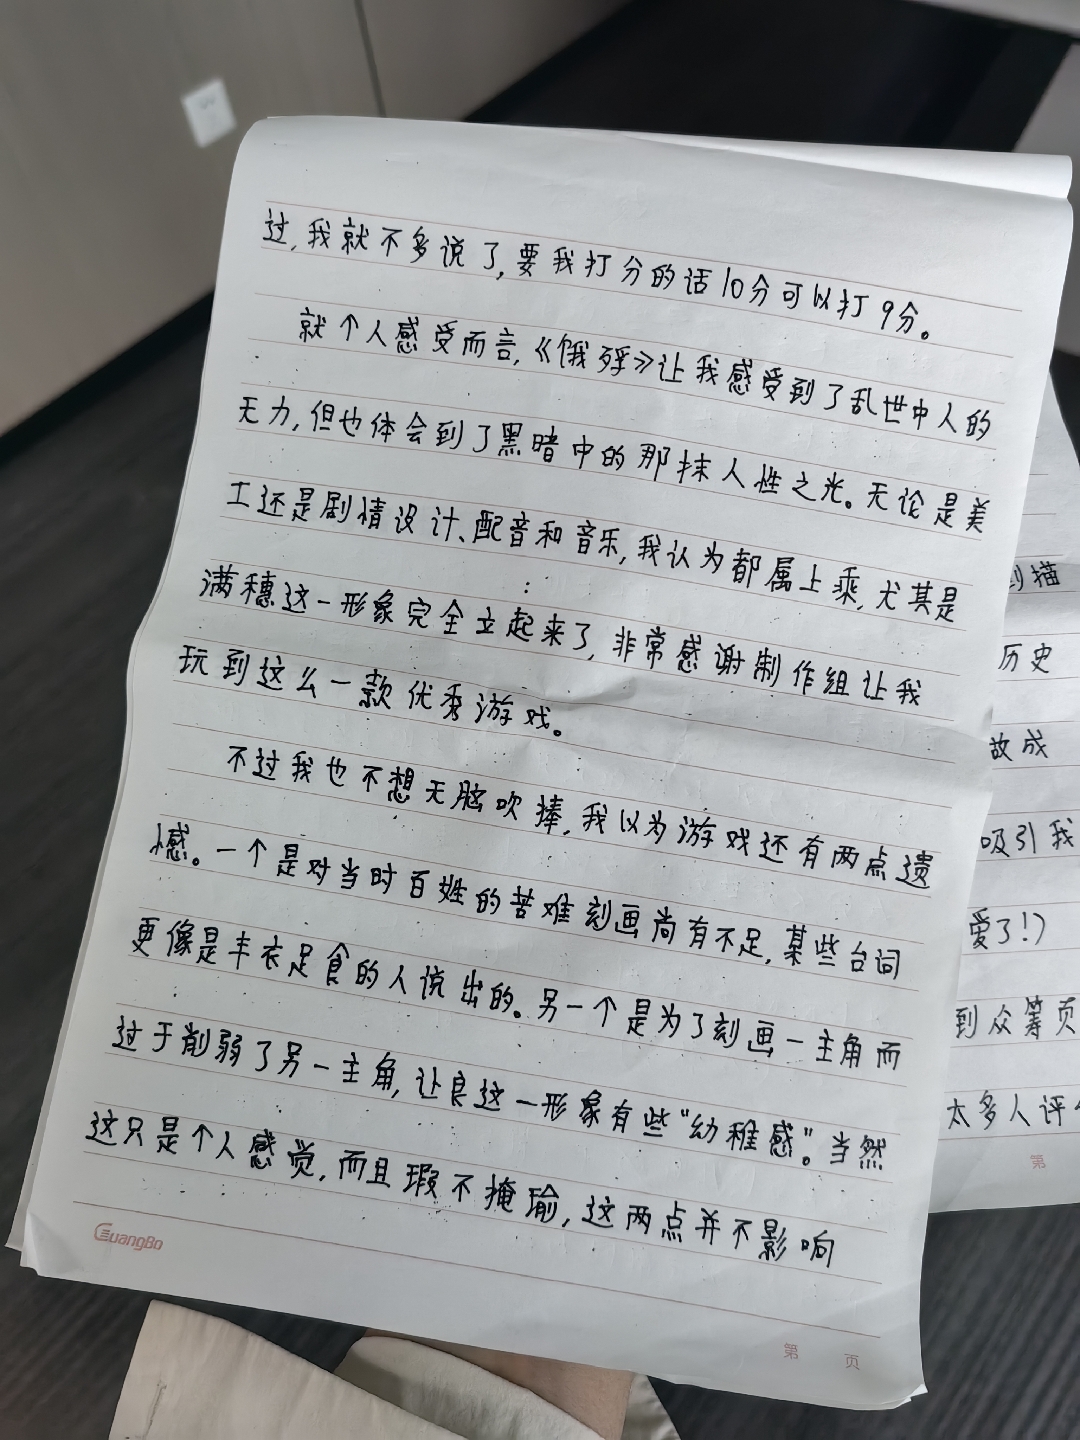 过,我就不多说了,要我打分的话10分可以打9分。
就个人感受而言,《饿殍》让我感受到了乱世中人的
无力,但也体会到了黑暗中的那抹人性之光。无论是美
工还是剧情设计、配音和音乐,我认为都属上乘,尤其是
满穗这一形象完全立起来了,非常感谢制作组让我
玩到这么一款优秀游戏。
不过我也不想无脑吹捧,我以为游戏还有两点遗
憾。一个是对当时百姓的苦难刻画尚有不足,某些台词
更像是丰衣足食的人说出的。另一个是为了刻画一主角而
过于削弱了另一主角,让良这一形象有些"幼稚感"。当然
这只是个人感觉,而且瑕不掩瑜,这两点并不影响
GuangBo
第 页
描
历史
故成
吸引我
爱了!)
到众筹页
太多人评
第